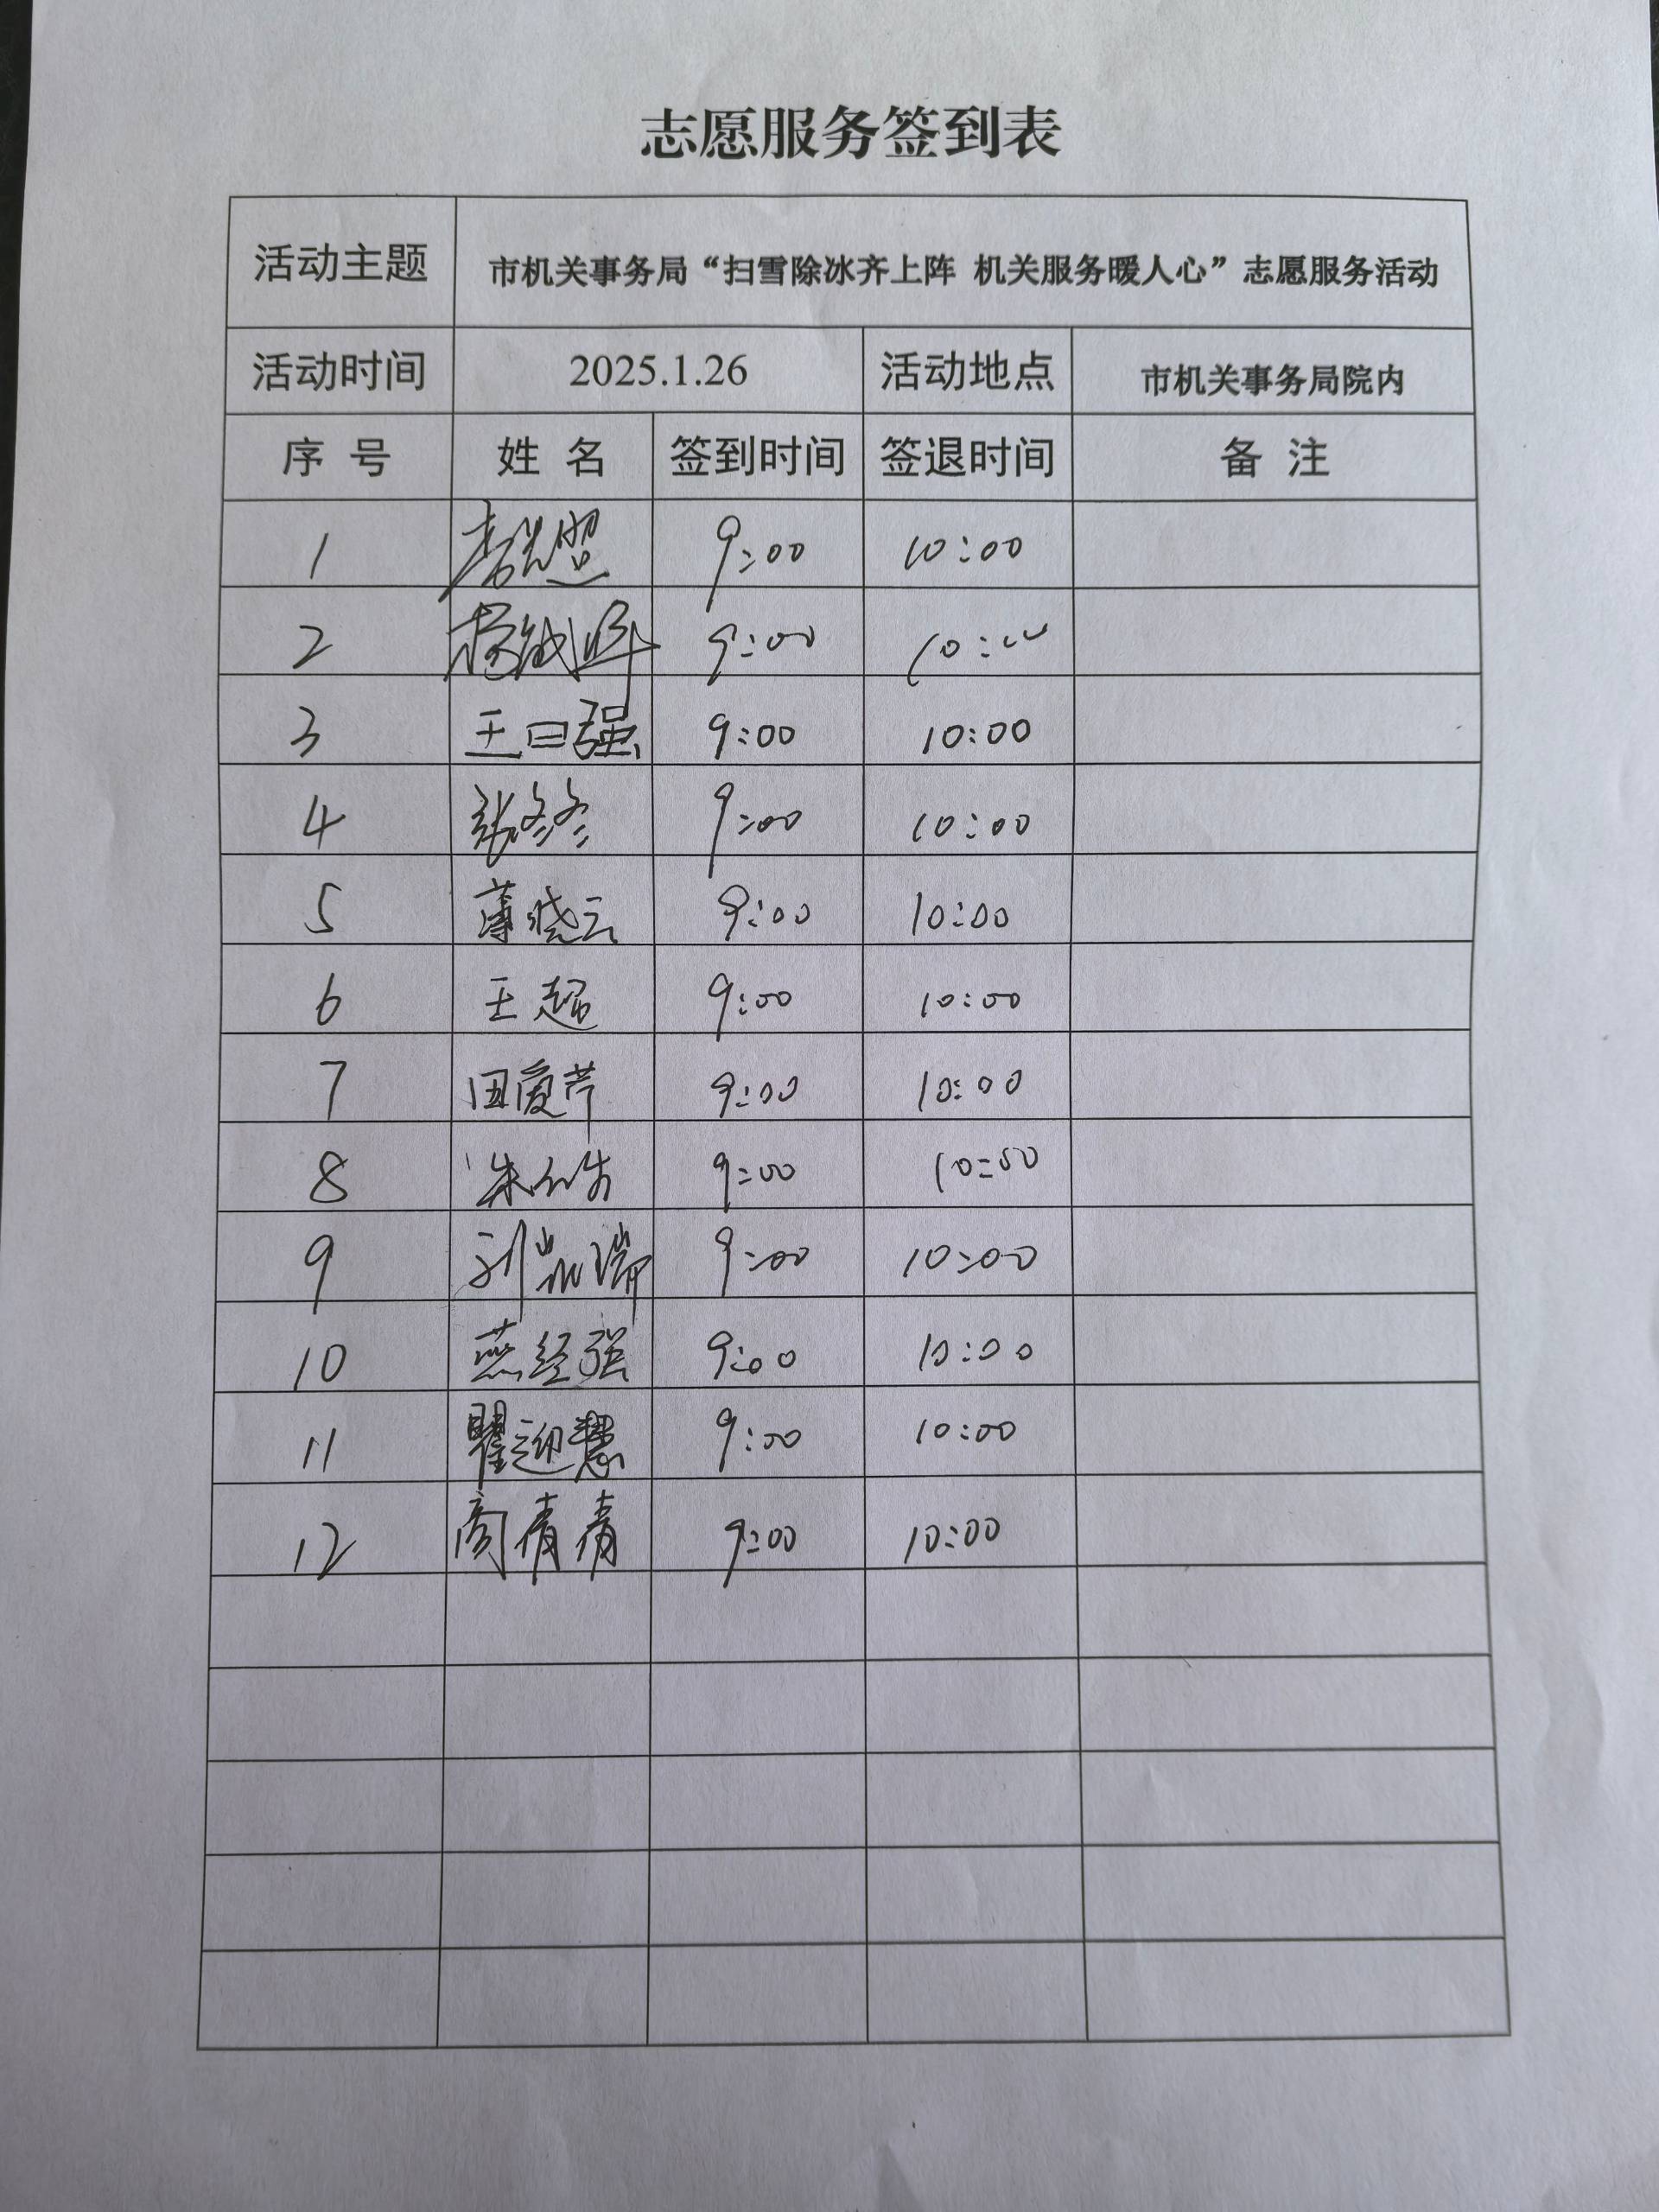 志愿服务签到表
活动主题 市机关事务局“扫雪除冰齐上阵 机关服务暖人心”志愿服务活动
活动时间 2025.1.26 活动地点 市机关事务局院内
序 号 姓 名 签到时间 签退时间 备 注
1 9:00 10:00
2 9:00 10:00
3 王曰强 9:00 10:00
4 张冬冬 9:00 10:00
5 薄晓云 9:00 10:00
6 王超 9:00 10:00
7 田爱芹 9:00 10:00
8 9:00 10:00
9 刘凯瑞 9:00 10:00
10 燕经强 9:00 10:00
11 瞿迎慧 9:00 10:00
12 商青青 9:00 10:00